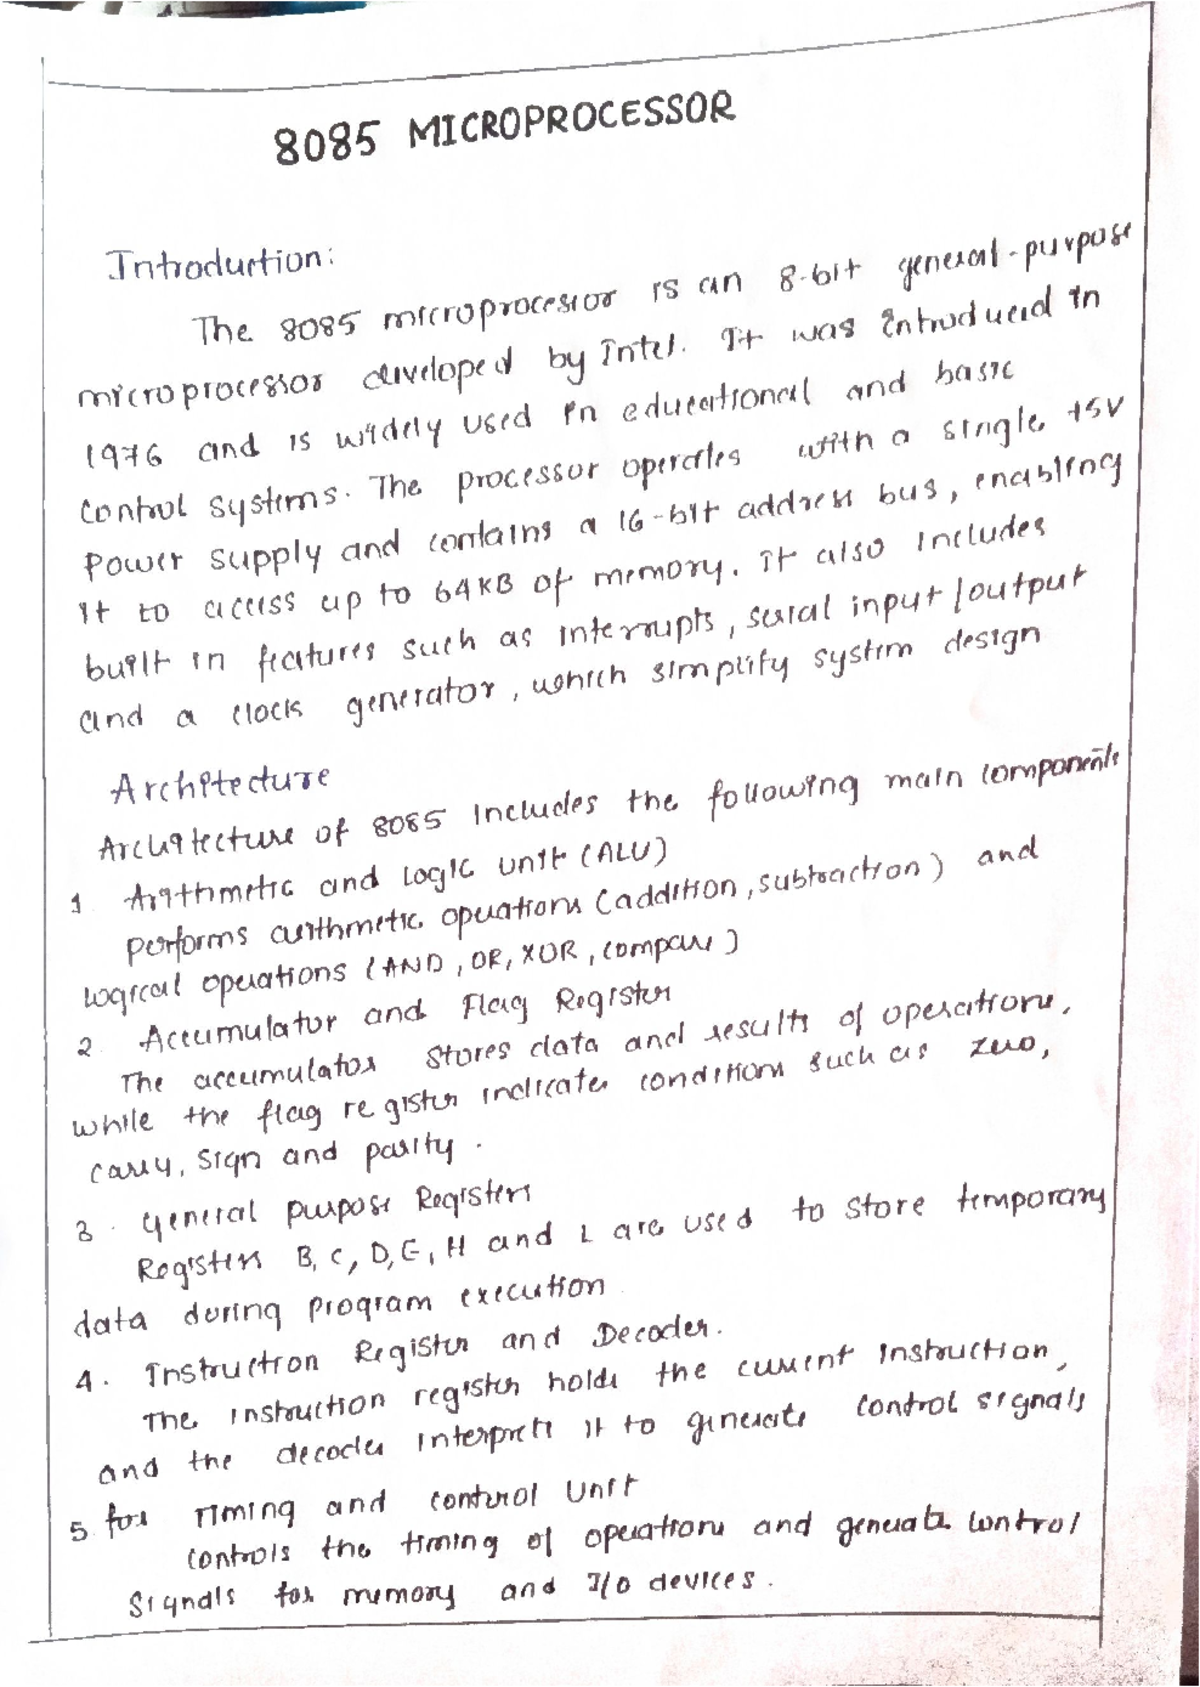 8085 MICROPROCESSOR
Introduction:
The 8085 microprocessor is an 8-bit general-purpose
microprocessor developed by Intel. It was introduced in
1976 and is widely used in educational and basic
Control systems. The processor operates with a single +5V
Power supply and contains a 16-bit address bus, enabling
it to access up to 64KB of memory. it also includes
built in features such as interrupts, serial input/output
and a clock generator, which simplify system design
Architecture
Architecture of 8085 includes the following main components
1 Arithmetic and Logic unit (ALU)
Performs arithmetic operations (addition, subtraction) and
logical operations (AND, OR, XOR, compare)
2 Accumulator and Flag Register
The accumulator stores data and results of operations,
while the flag register indicates conditions such as zero,
carry, sign and parity.
3. General purpose Registers
Registers B, C, D, E, H and L are used to store temporary
data during program execution
4. Instruction Register and Decoder.
The instruction register holds the current instruction,
and the decoder interprets it to generate control signals
5. for Timing and control Unit
controls the timing of operations and generate control
signals for memory and I/O devices.